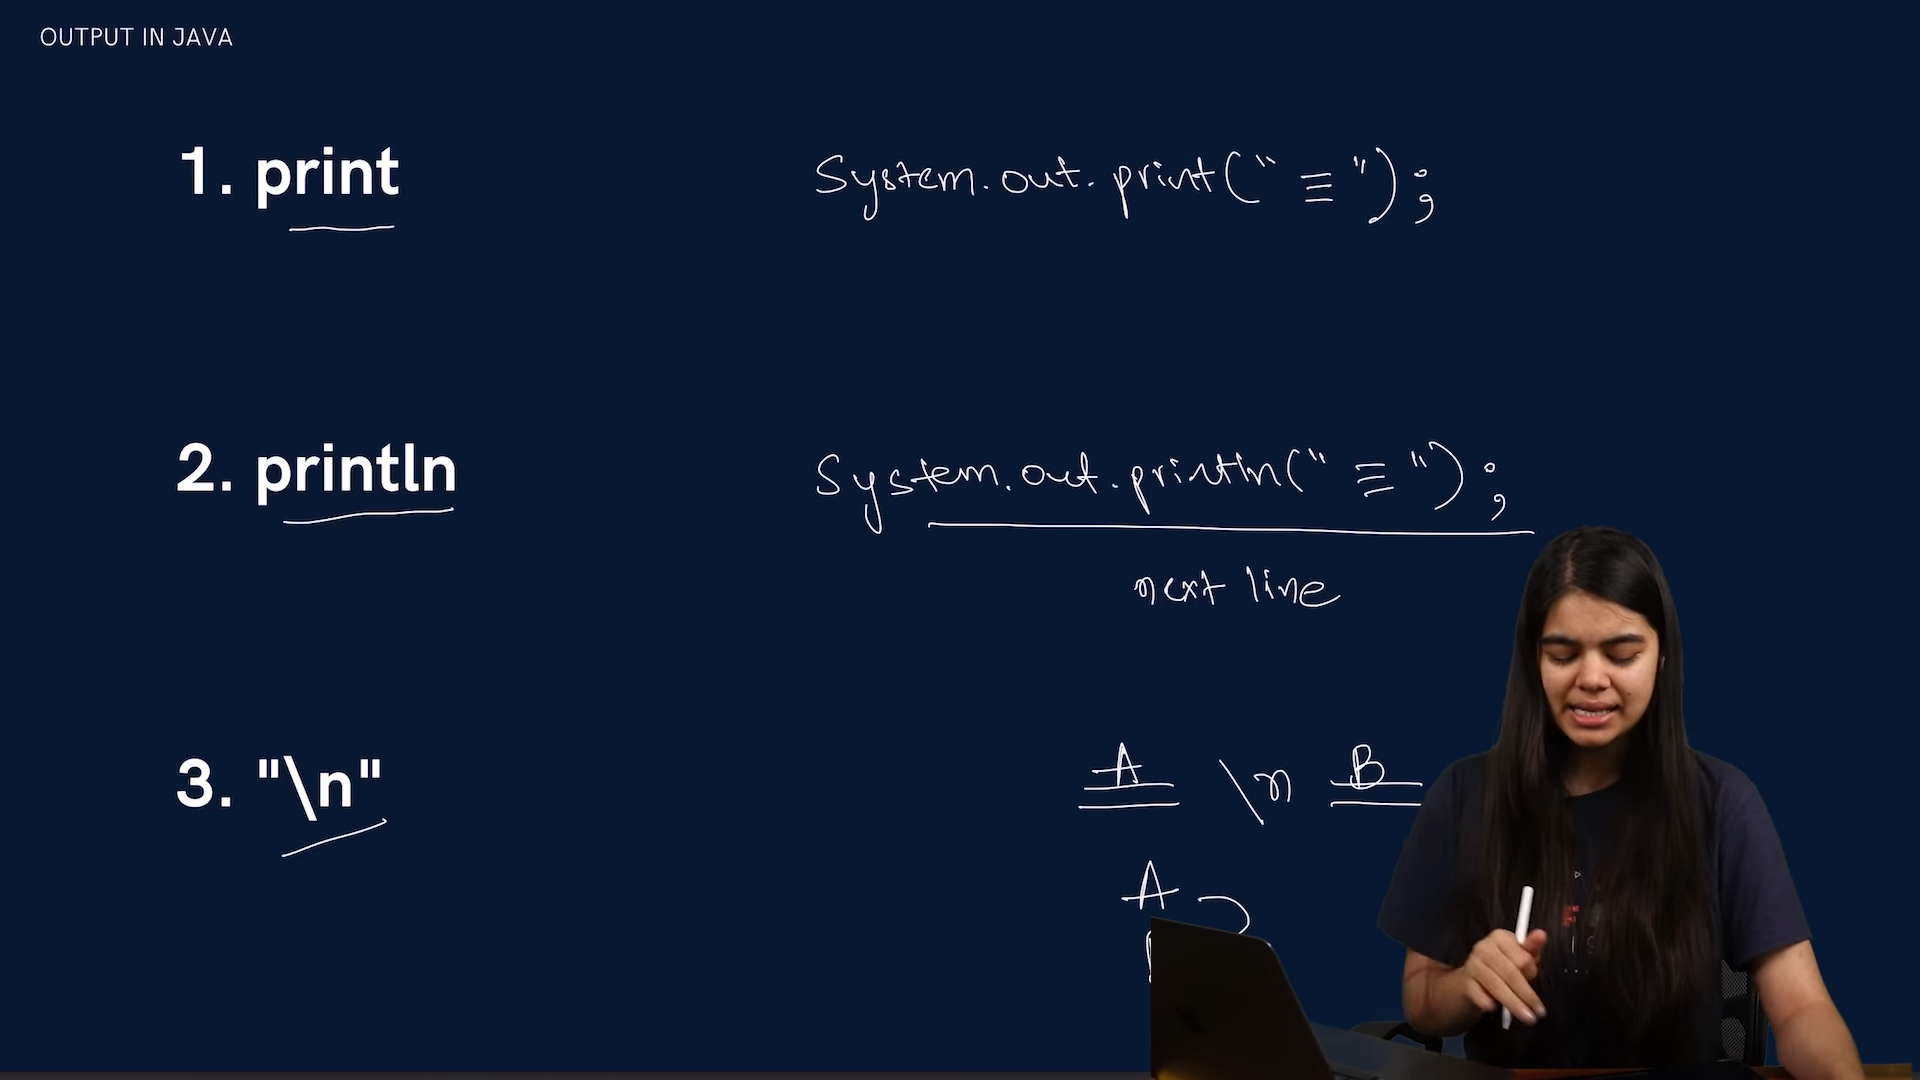 OUTPUT IN JAVA
1. print
System.out.print(" ≡ ");
2. println
System.out.println(" ≡ ");
next line
3. "\n"
A \n B
A